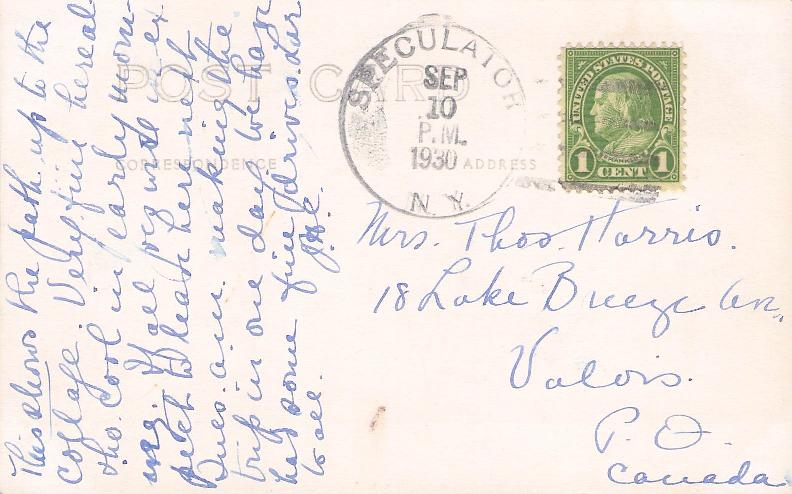 This shows the path up to the
cottage. Very fine hereal
tho. cool in early morn-
ing. we ex
pect to leave here next
Tues. a.m. making the
trip in one day. We have
had some fine drives. Luv
to all.
POST CARD
CORRESPONDENCE
ADDRESS
SPECULATOR
SEP
10
P.M.
1930
N.Y.
UNITED STATES POSTAGE
FRANKLIN
1 CENT 1
Mrs. Thos. Harris.
18 Lake Breeze Av.,
Valois.
P. Q.
Canada